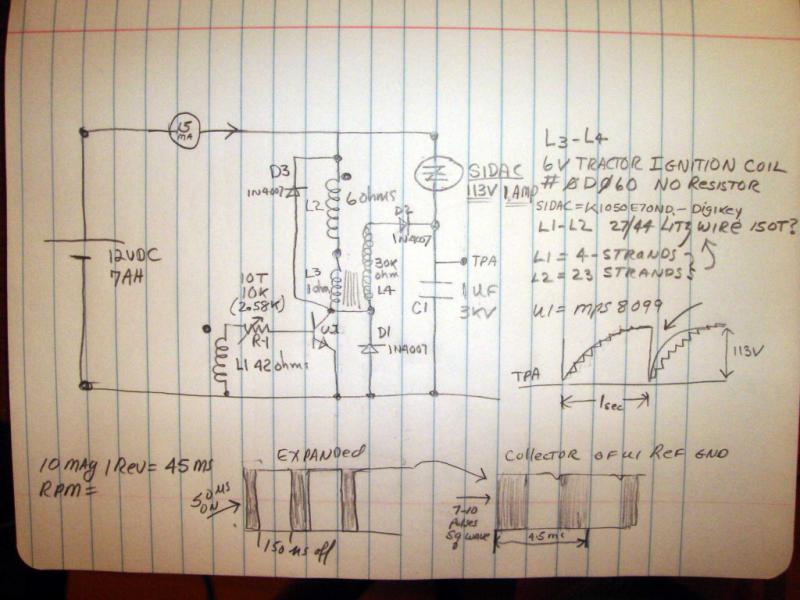 15
MA
D3
1N4007
L2
6 ohms
SIDAC
113V 1 AMP
L3-L4
6V TRACTOR IGNITION COIL
# ØDØ60 NO RESISTOR
SIDAC=K1050E70ND - Digikey
L1-L2 27/44 LITZ WIRE 150T?
L1 = 4-STRANDS
L2 = 23 STRANDS
U1 = mps 8099
D2
1N4007
TPA
12VDC
7AH
L3
1 ohm
30K
ohm
L4
1UF
3KV
C1
10T
10K
(2.58K)
R-1
U1
D1
1N4007
L1 42 ohms
TPA
113V
1sec
10 MAG 1 Rev = 45 ms
RPM=
EXPANDED
50 µs
ON
150 µs off
Collector OF U1 Ref GND
7-10
Pulses
Sq wave
4.5 ms